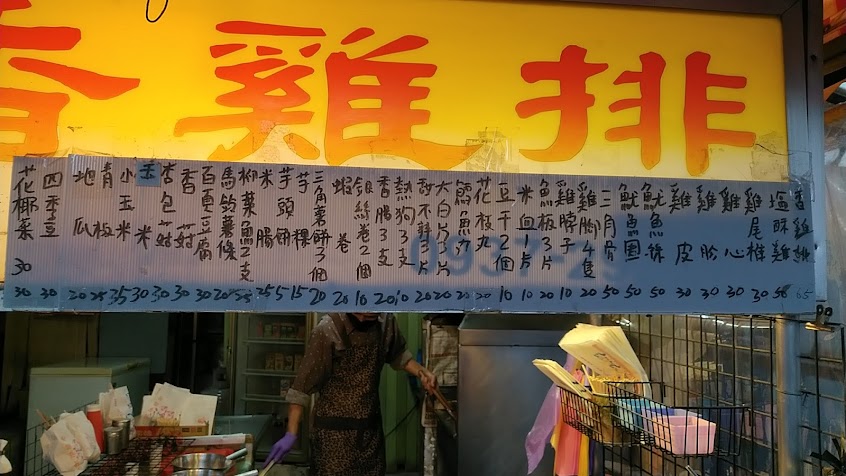 香雞排
香雞排 65
塩酥雞
雞尾椎 30
雞心 30
雞胗 30
雞皮 30
魷魚絲 50
魷魚圈 50
三角骨 50
雞腳4隻 20
雞脖子 10
魚板3片 20
米血1片 10
豆干2個 10
花枝丸 20
鱈魚丸 20
大白片3片 20
甜不辣3片 20
熱狗3支 10
香腸3支 20
銀絲卷2個 10
蝦卷 20
三角薯餅3個 20
芋粿 15
芋頭餅 5
米腸 25
柳葉魚2支 25
馬鈴薯條 20
百頁豆腐 30
香菇 30
杏包菇 30
玉米 30
小玉米 35
青板 25
地瓜 20
四季豆 30
花椰菜 30 30
0937-29